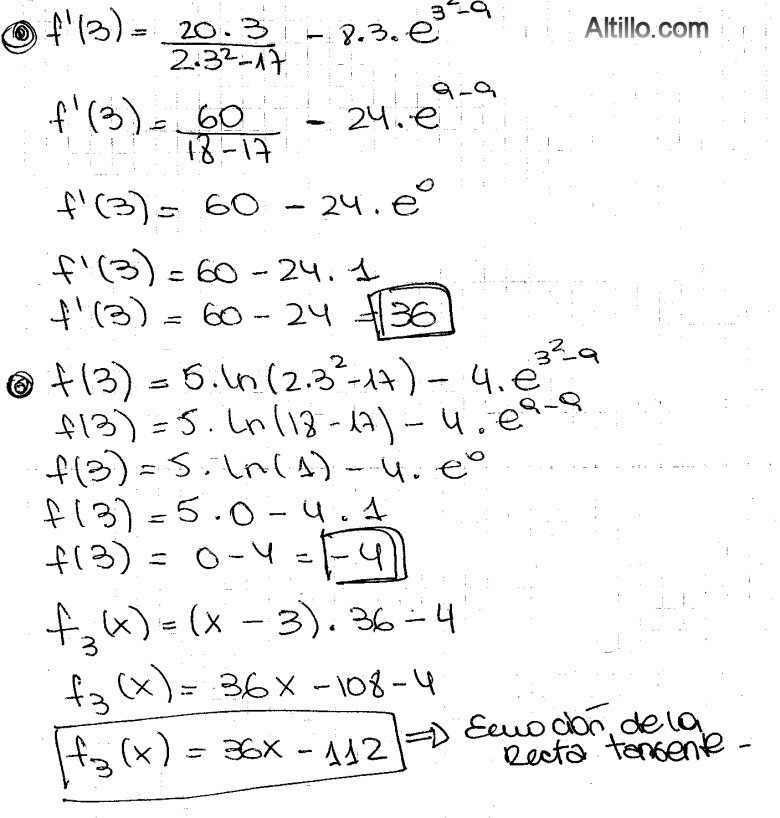 Altillo.com
f'(3) = 20.3 / 2.3²-17 - 8.3.e^3²-9
f'(3) = 60 / 18-17 - 24.e^9-9
f'(3) = 60 - 24.e^0
f'(3) = 60 - 24.1
f'(3) = 60 - 24 = 36
f(3) = 5.ln(2.3²-17) - 4.e^3²-9
f(3) = 5.ln(18-17) - 4.e^9-9
f(3) = 5.ln(1) - 4.e^0
f(3) = 5.0 - 4.1
f(3) = 0-4 = -4
f₃(x) = (x-3).36-4
f₃(x) = 36x-108-4
f₃(x) = 36x-112 ⇒ Ecuación de la
Recta tangente -